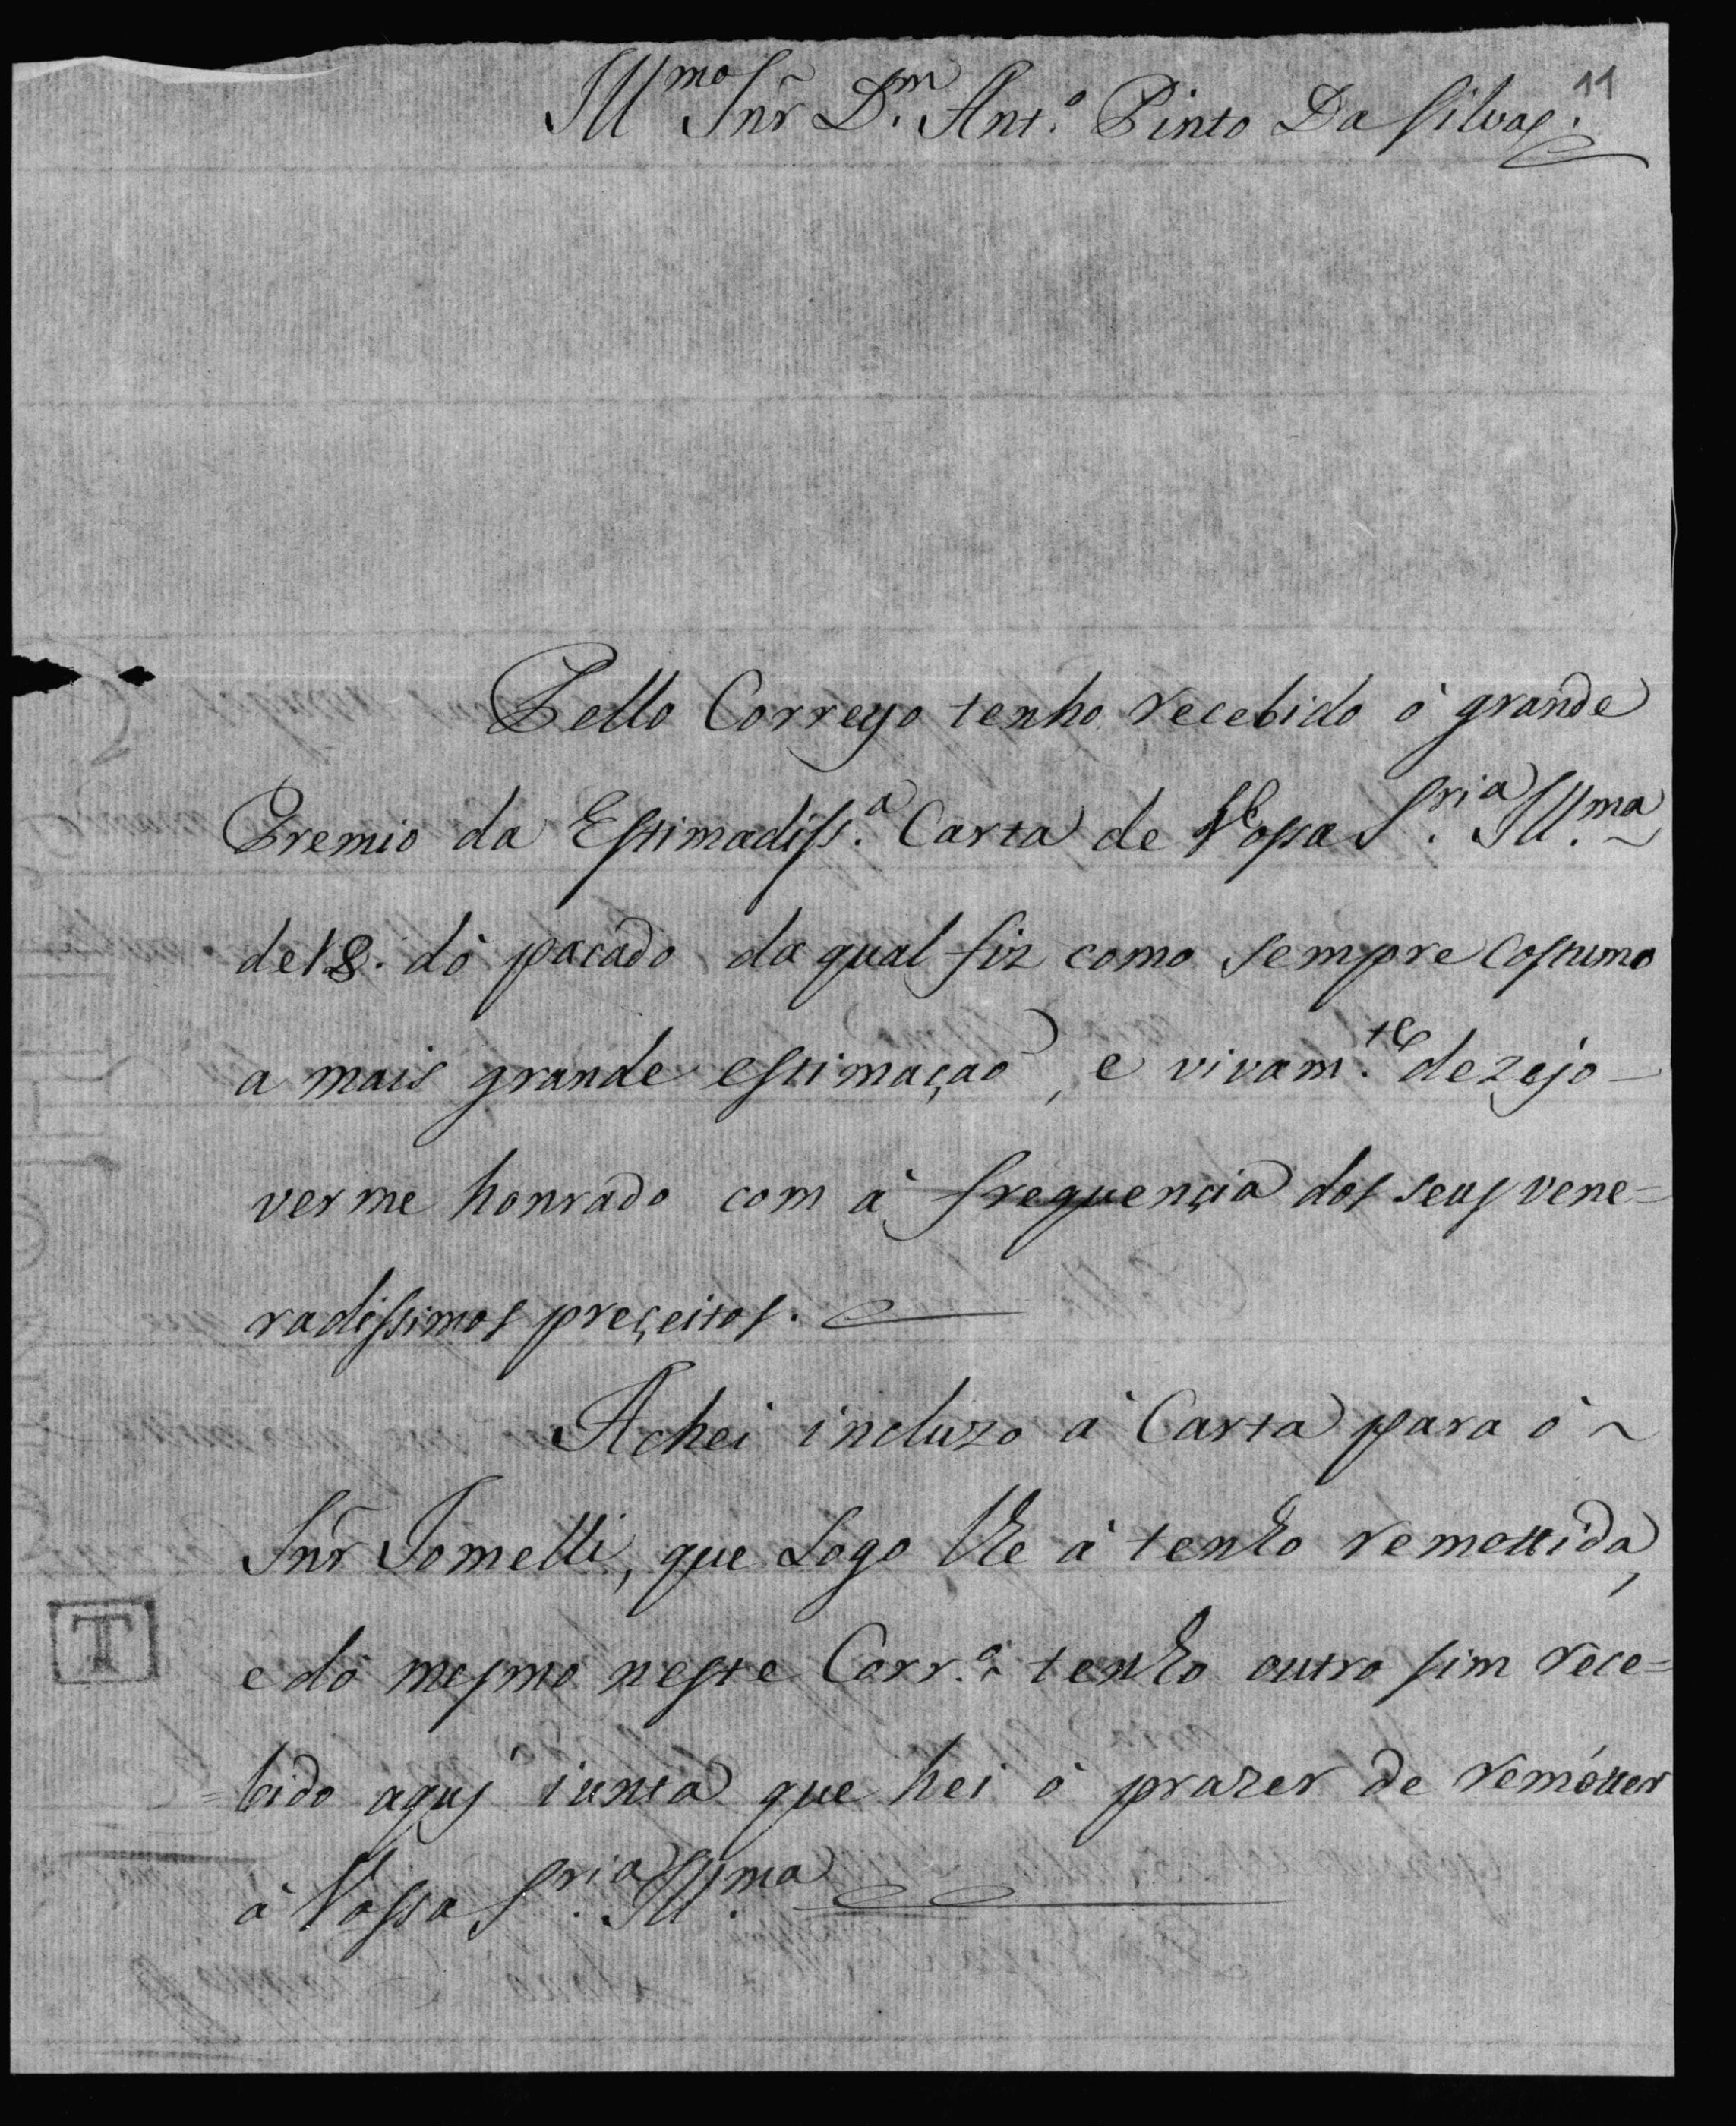 11
Ill^mo Snr̃ D.^m Ant.^o Pinto Da Silva.
Pello Correyo tenho recebido ò grande
Premio da Estimadiss.^a Carta de Vossa S.^ria Ill.^ma
de 18. dò pacado, da qual fiz como sempre costumo
a mais grande estimaçaõ, e vivam.^te dezejo
verme honrado com à frequençia dos seus vene=
radissimos preçeitos.
Achei incluzo à Carta para ò
Snr̃ Jomelli, que Logo lhe à tenho remettida,
e dò mesmo neste Corr.^o tenho outro sim rece=
=bido aquj iunta que hei ò prazer de remétter
à Vossa S.^ria Ill.^ma
T